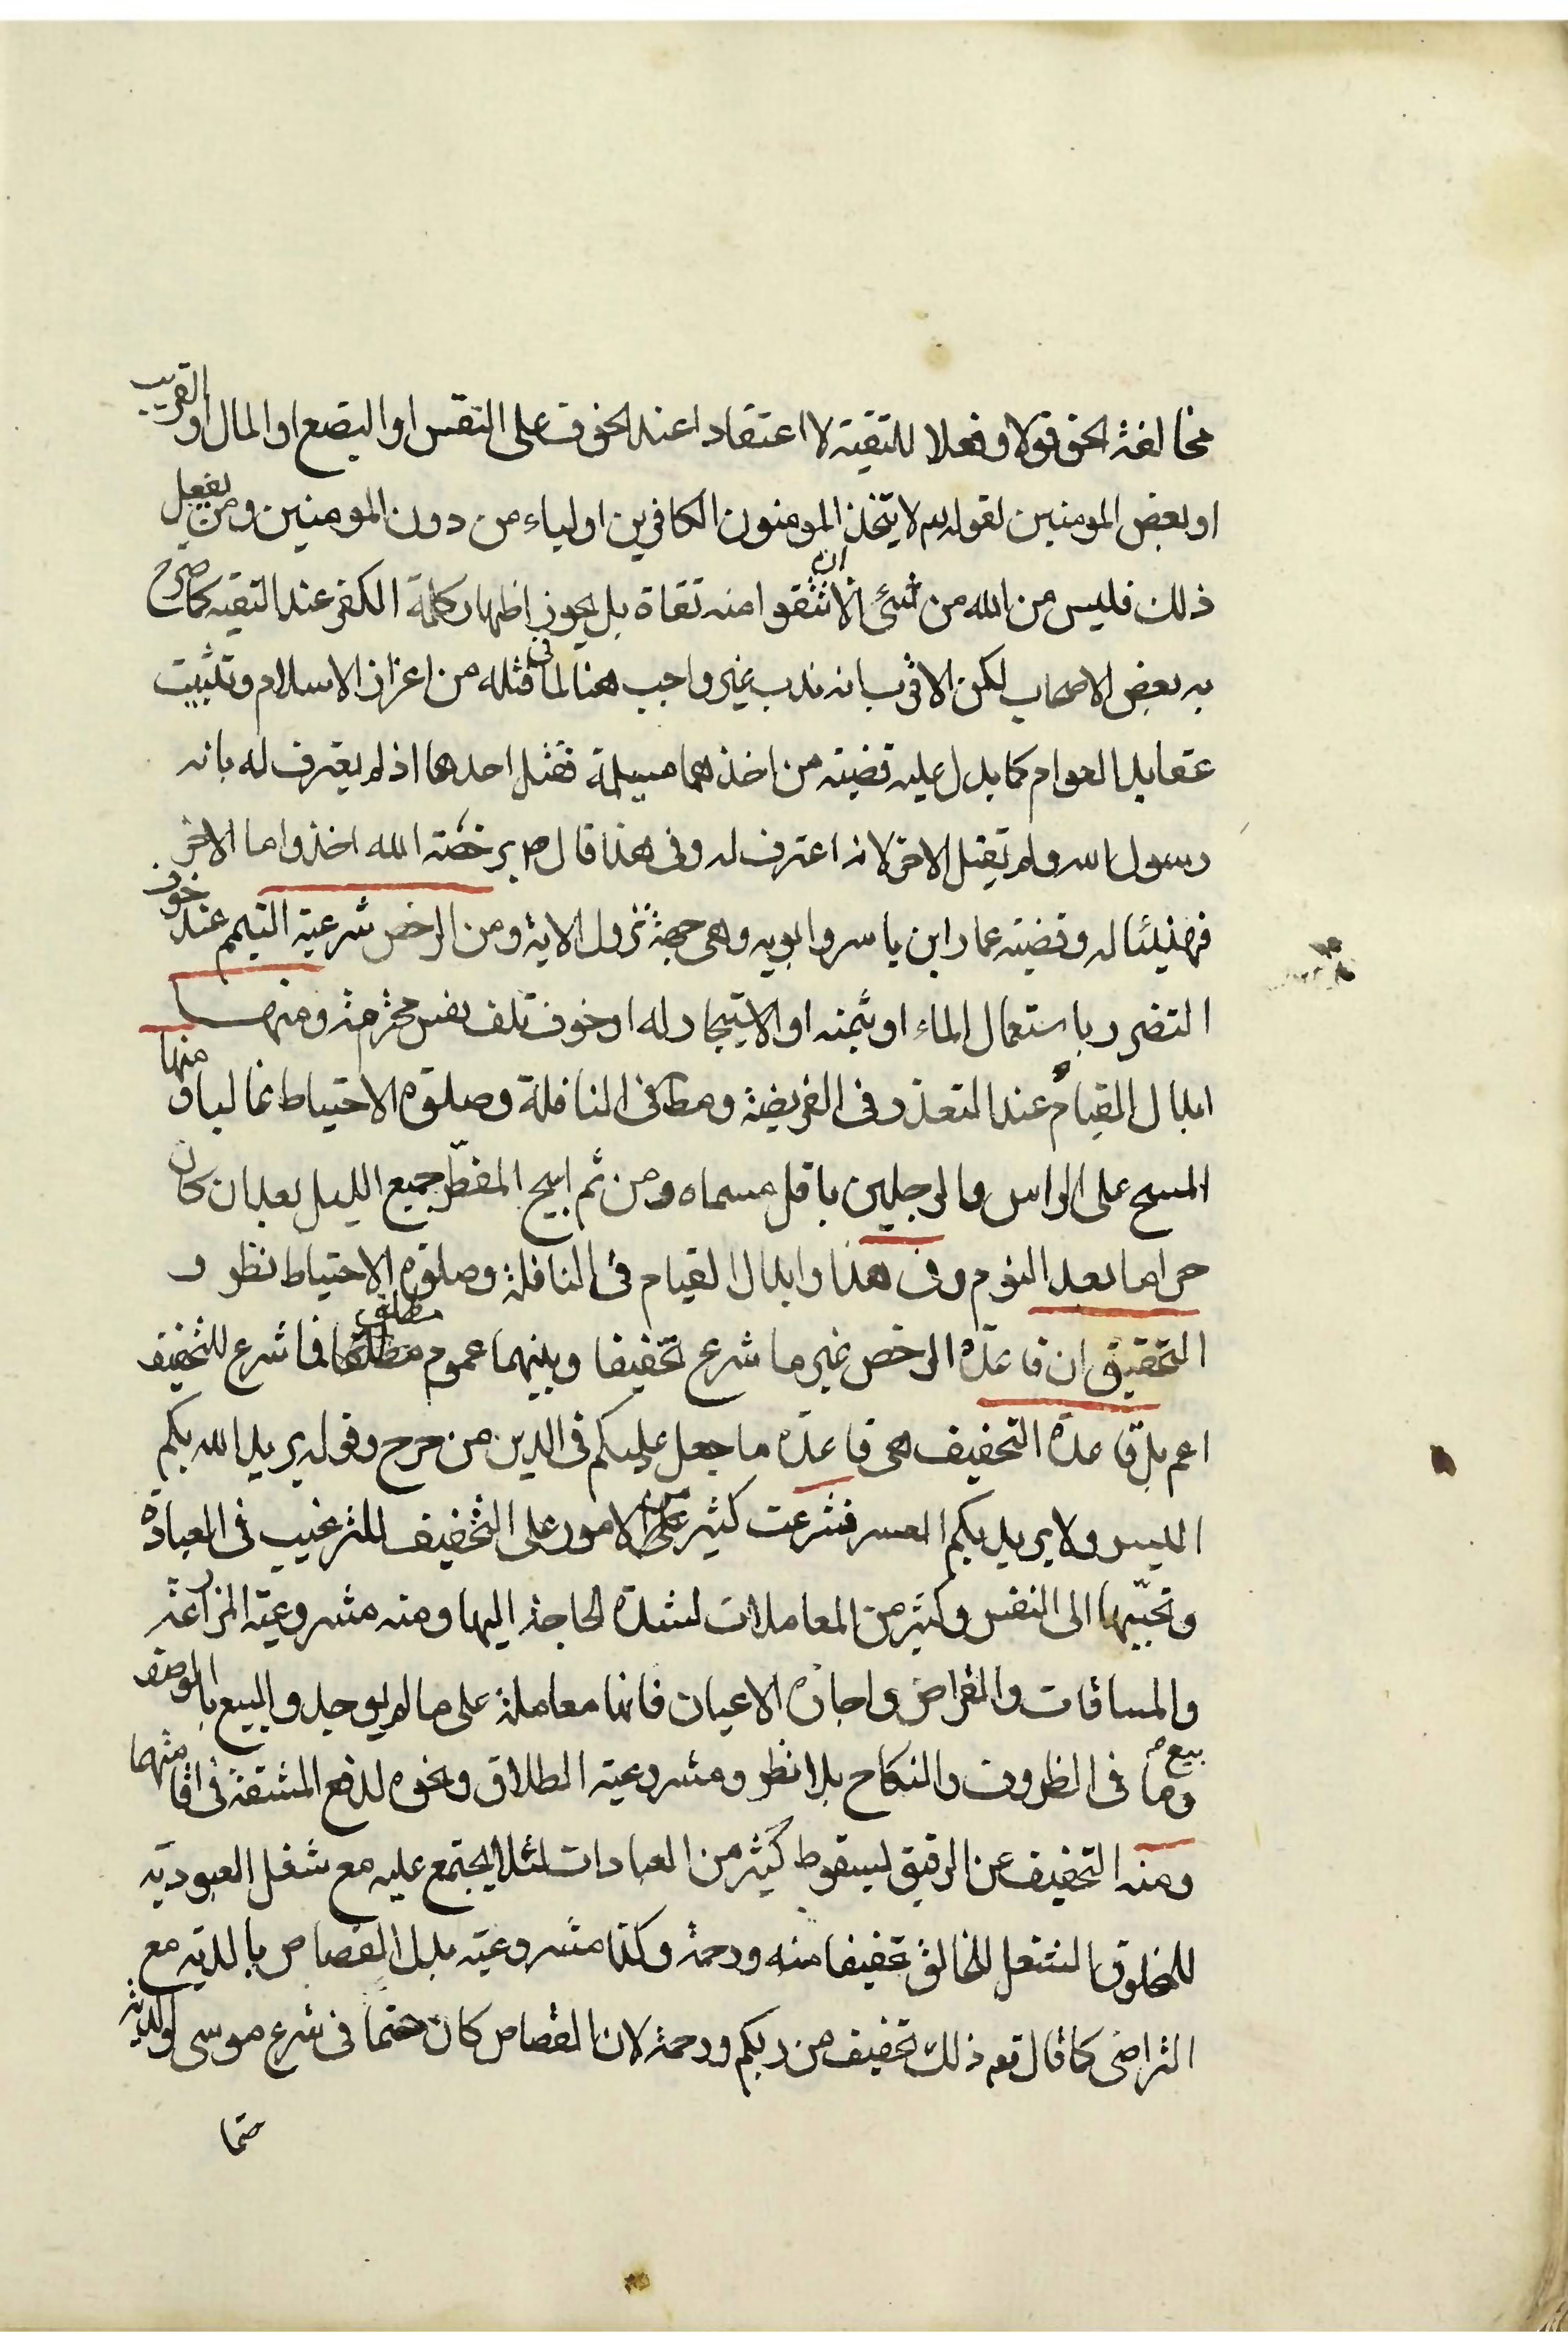 مخالفة الحق قولا وفعلا للتقية لا اعتقادا عند الخوف على النفس او البضع او المال او القريب
او بعض المومنين لقوله تعالى لا يتخذ المومنون الكافرين اولياء من دون المومنين ومن يفعل
ذلك فليس من الله من شئ الا ان تتقوا منه تقاة بل يجوز اظهار كلمة الكفر عند التقيه كما صرح
به بعض الاصحاب لكن الاقرب انه ندب غير واجب هنا لما فى قتله من اعزاز الاسلام وتثبيت
عقايد العوام كما يدل عليه قضيته من اخذهما مسيلمة فقتل احدهما اذ لم يعترف له بانه
رسول الله ولم يقتل الاخر لانه اعترف له وفى هذا قال ص برخصة الله اخذ واما الاخر
فهنيئا له وقضيته عمار ابن ياسر وابويه وهى جهة نزول الاية ومن الرخص شرعية التيمم عند خوف
التضرر باستعمال الماء او ثمنه او الاستيجار له او خوف تلف نفس محترمة ومنها
ابدال القيام عند التعذر فى الفريضة ومط فى النافلة وصلوة الاحتياط غالبا ومنها
المسح على الراس والرجلين باقل مسماه ومن ثم ابيح المفطر جميع الليل بعد ان كان
حراما بعد النوم وفى هذا وابدال القيام فى النافلة وصلوة الاحتياط نظر و
التحقيق ان قاعدة الرخص غير ما شرع تخفيفا وبينهما عموم مطلق فما شرع للتخفيف
اعم بل قاعدة التخفيف هى قاعدة ما جعل عليكم فى الدين من حرج وقوله يريد الله بكم
اليسر ولا يريد بكم العسر فشرعت كثير من الامور على التخفيف للترغيب فى العبادة
وتحبيبها الى النفس وكثير من المعاملات لشدة الحاجة اليها ومنه مشروعية المزارعة
والمساقات والقراض واجارة الاعيان فانها معاملة على ما لم يوجد والبيع بالوصف
وبيع ما فى الظروف والنكاح بلا نظر ومشروعية الطلاق ونحوه لدفع المشقة فى اقامتهما
ومنه التخفيف عن الرقيق لسقوط كثير من العبادات لئلا يجتمع عليه مع شغل العبودية
للمخلوق الشغل للخالق تخفيفا منه ورحمة وكذا مشروعية بدل القصاص بالدية مع
التراضى كما قال تعه ذلك تخفيف من ربكم ورحمة لان القصاص كان حتما فى شرع موسى والدية
حتما